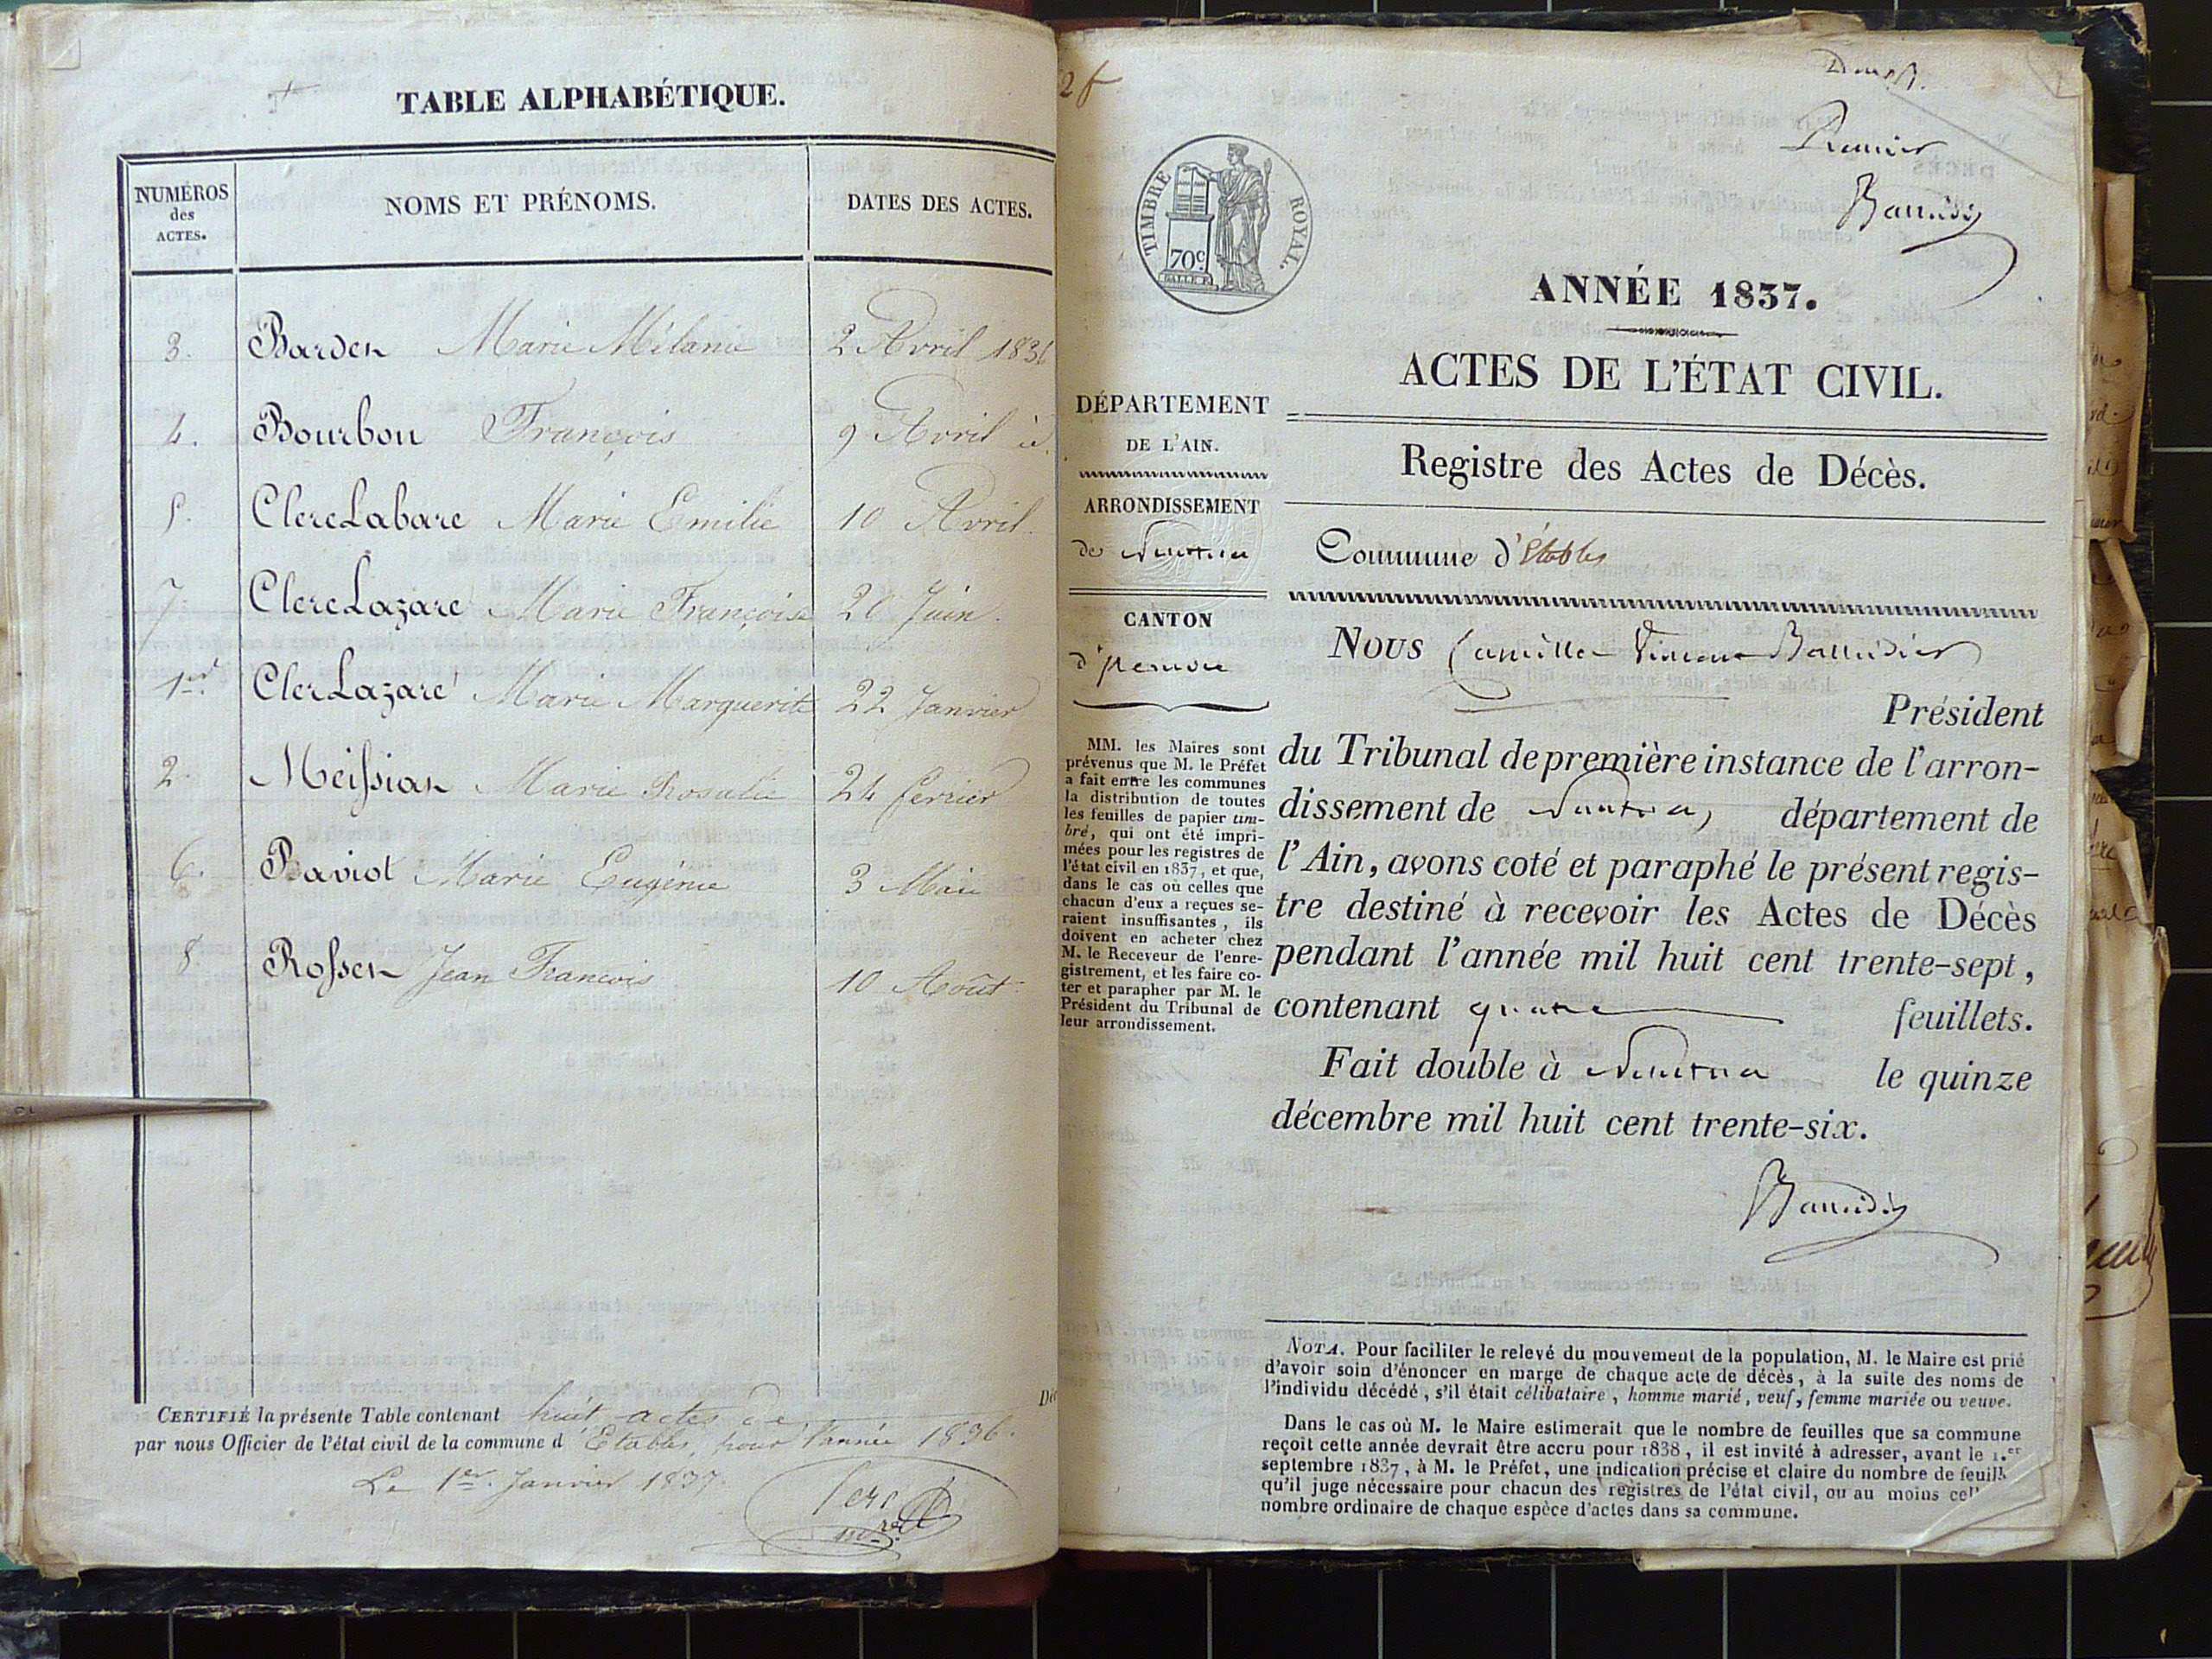 TABLE ALPHABÉTIQUE.
NUMÉROS
des
ACTES.
NOMS ET PRÉNOMS.
DATES DES ACTES.
3. Barden Marie Mélanie 2 Avril 1836
4. Bourbon François 9 Avril id.
5. Clerc Labare Marie Emilie 10 Avril.
7. Clerc Lazare Marie Françoise Juin.
1er. Cler Lazare Marie Marguerite 22 Janvier
2. Meissian Marie Rosalie 24 fevrier
6. Baviot Marie Eugénie 3 Mai
8. Rossen Jean Francois 10 Août.
CERTIFIÉ la présente Table contenant huit actes
par nous Officier de l'état civil de la commune d'Etables, pour l'année 1836.
Le 1er. Janvier 1837.
2f
Premier
TIMBRE ROYAL.
70c
ANNÉE 1837.
ACTES DE L'ÉTAT CIVIL.
Registre des Actes de Décès.
DÉPARTEMENT
DE L'AIN.
ARRONDISSEMENT
de Nantua
CANTON
MM. les Maires sont
prévenus que M. le Préfet
a fait entre les communes
la distribution de toutes
les feuilles de papier tim-
bré, qui ont été impri-
mées pour les registres de
l'état civil en 1837, et que,
dans le cas où celles que
chacun d'eux a reçues se-
raient insuffisantes, ils
doivent en acheter chez
M. le Receveur de l'enre-
gistrement, et les faire co-
ter et parapher par M. le
Président du Tribunal de
leur arrondissement.
Commune d'Étables
Nous Camille Vincent
Président
du Tribunal de première instance de l'arron-
dissement de Nantua, département de
l'Ain, avons coté et paraphé le présent regis-
tre destiné à recevoir les Actes de Décès
pendant l'année mil huit cent trente-sept,
contenant quatre feuillets.
Fait double à Nantua le quinze
décembre mil huit cent trente-six.
NOTA. Pour faciliter le relevé du mouvement de la population, M. le Maire est prié
d'avoir soin d'énoncer en marge de chaque acte de décès, à la suite des noms de
l'individu décédé, s'il était célibataire, homme marié, veuf, femme mariée ou veuve.
Dans le cas où M. le Maire estimerait que le nombre de feuilles que sa commune
reçoit cette année devrait être accru pour 1838, il est invité à adresser, avant le 1.er
septembre 1837, à M. le Préfet, une indication précise et claire du nombre de feuill
qu'il juge nécessaire pour chacun des registres de l'état civil, ou au moins cel
nombre ordinaire de chaque espèce d'actes dans sa commune.